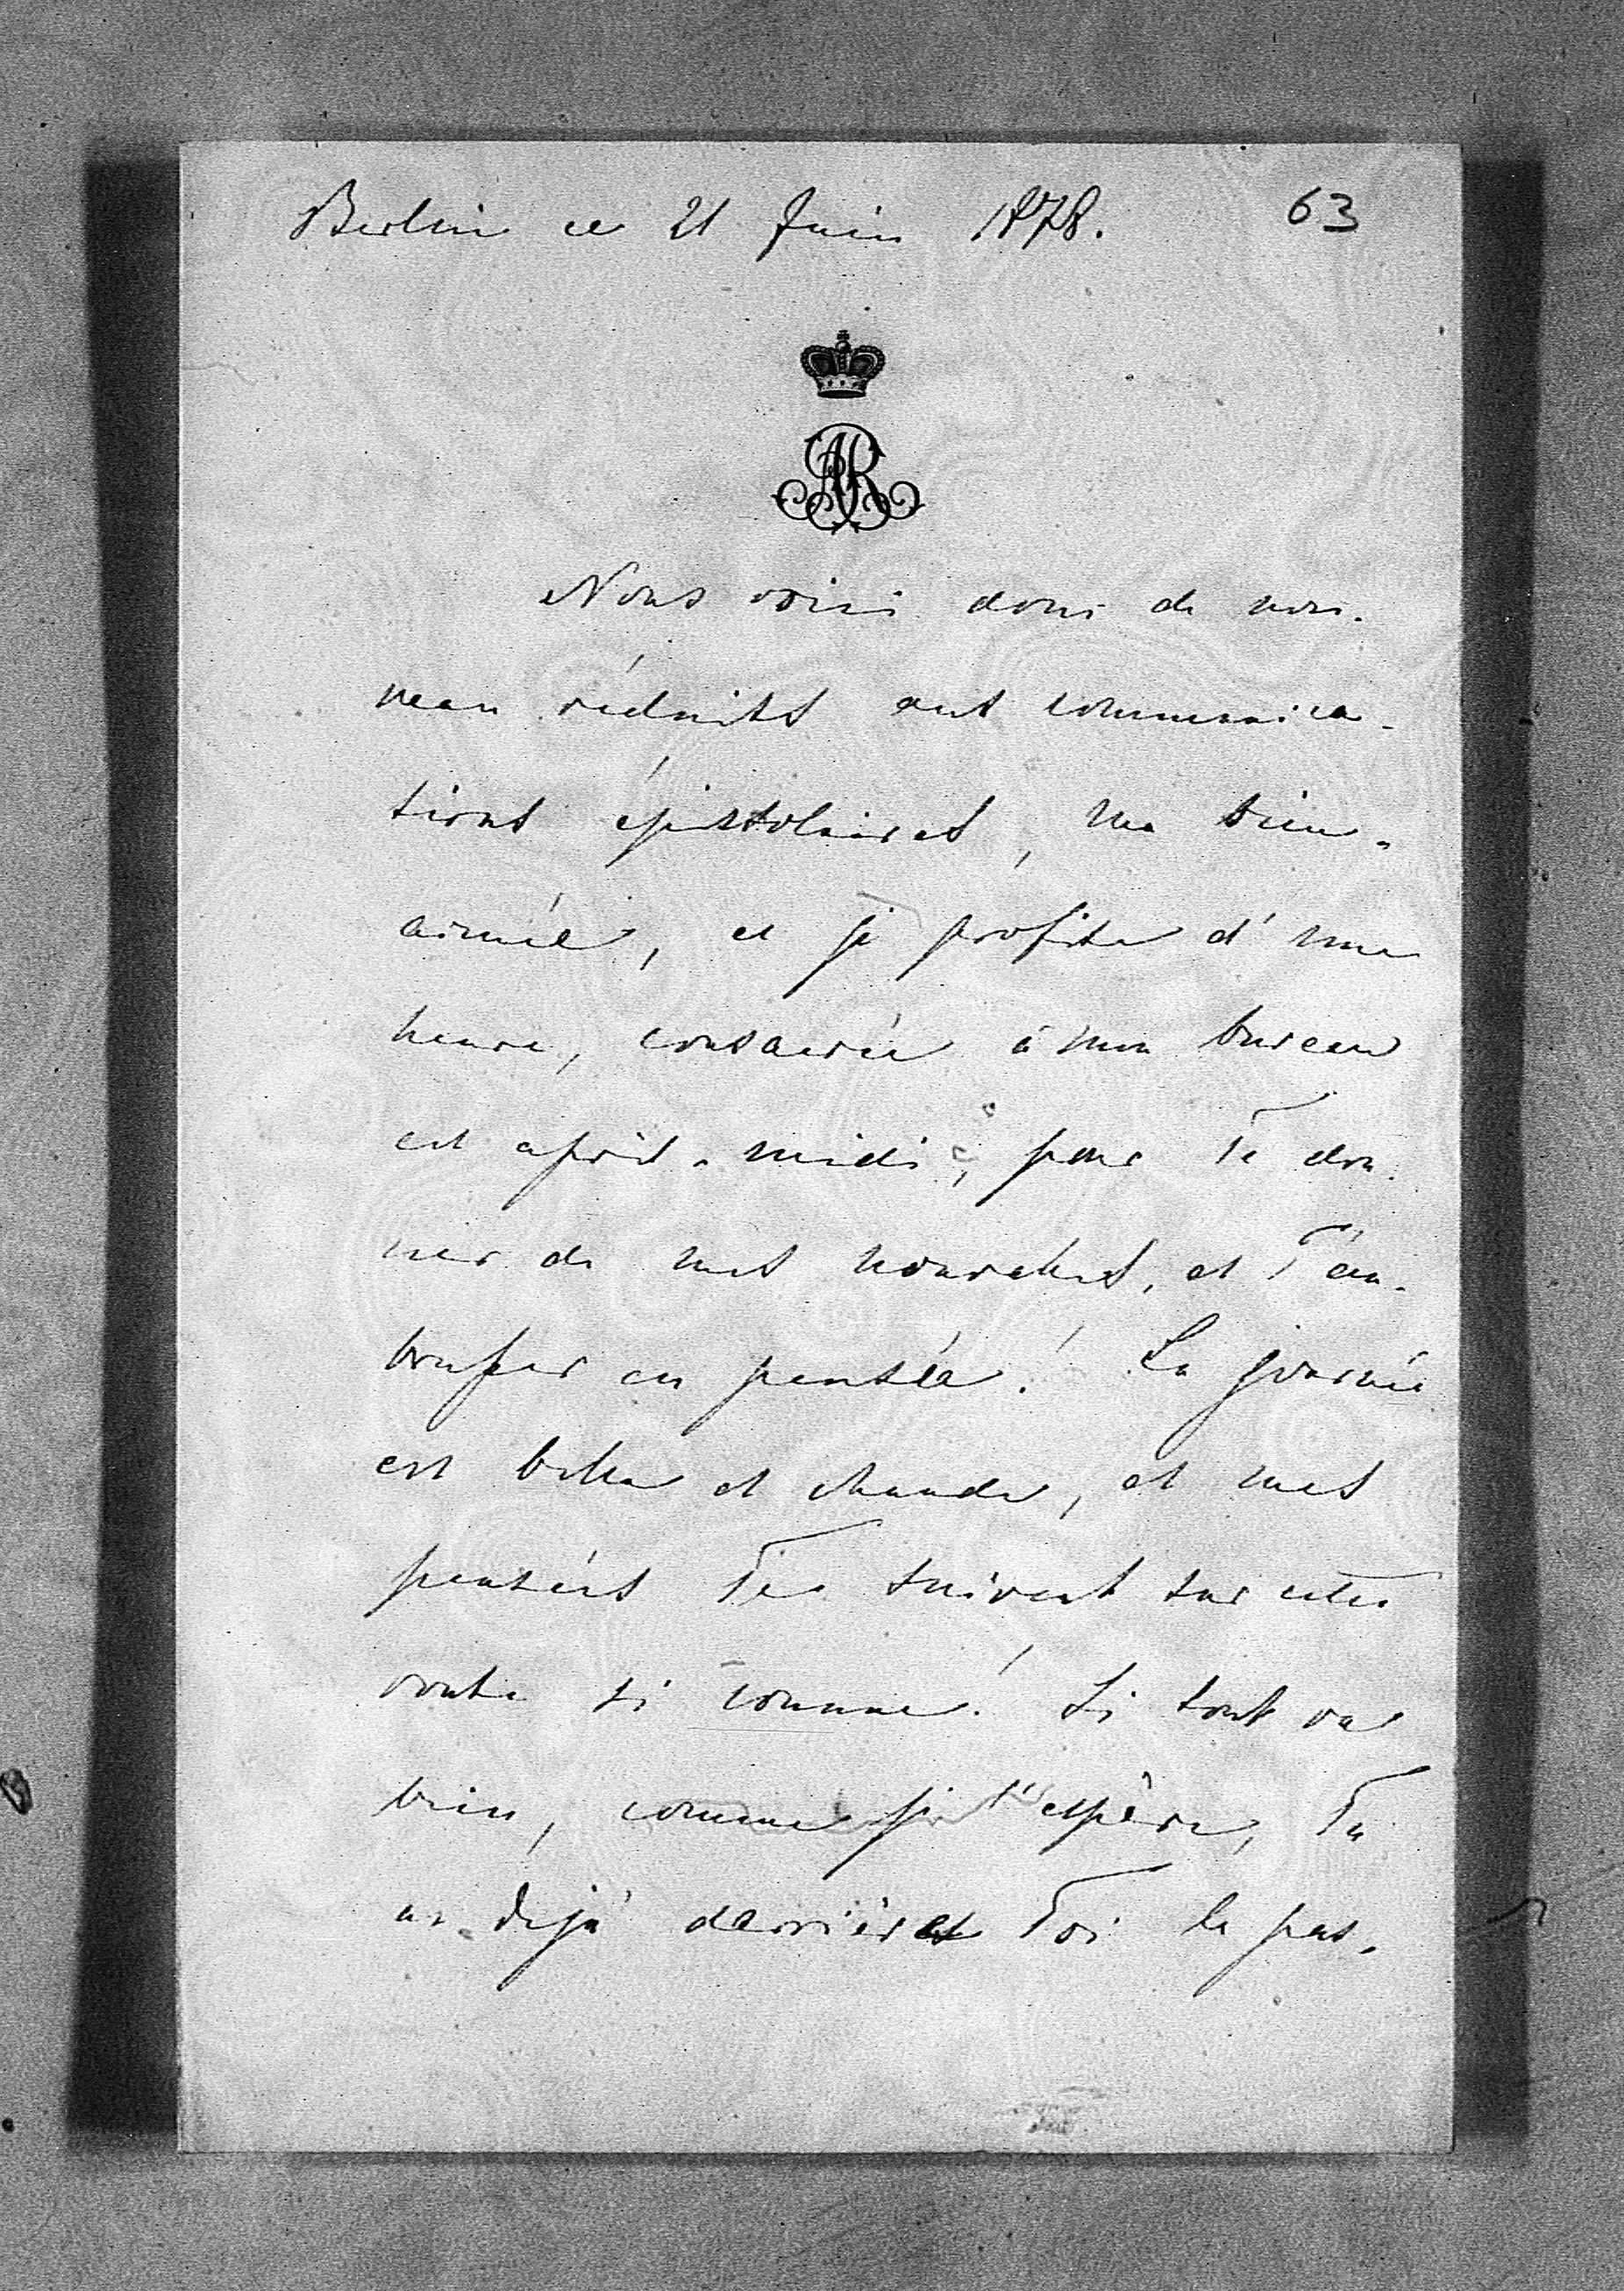 Berlin ce 21 Juin 1878. 63
AR
Nous voici donc de nou-
veau réduits aux communica-
tions épistolaires, ma bien-
aimée, et je profite d'une
heure, consacrée à mon bureau
cet après-midi, pour Te don-
ner de mes nouvelles, et T'em-
brasser en pensée! La journée
est belle et chaude, et mes
pensées Te suivent sur cette
route si connue! Si tout va
bien, comme je l'espère, Tu
as déjà derrière Toi le pas-